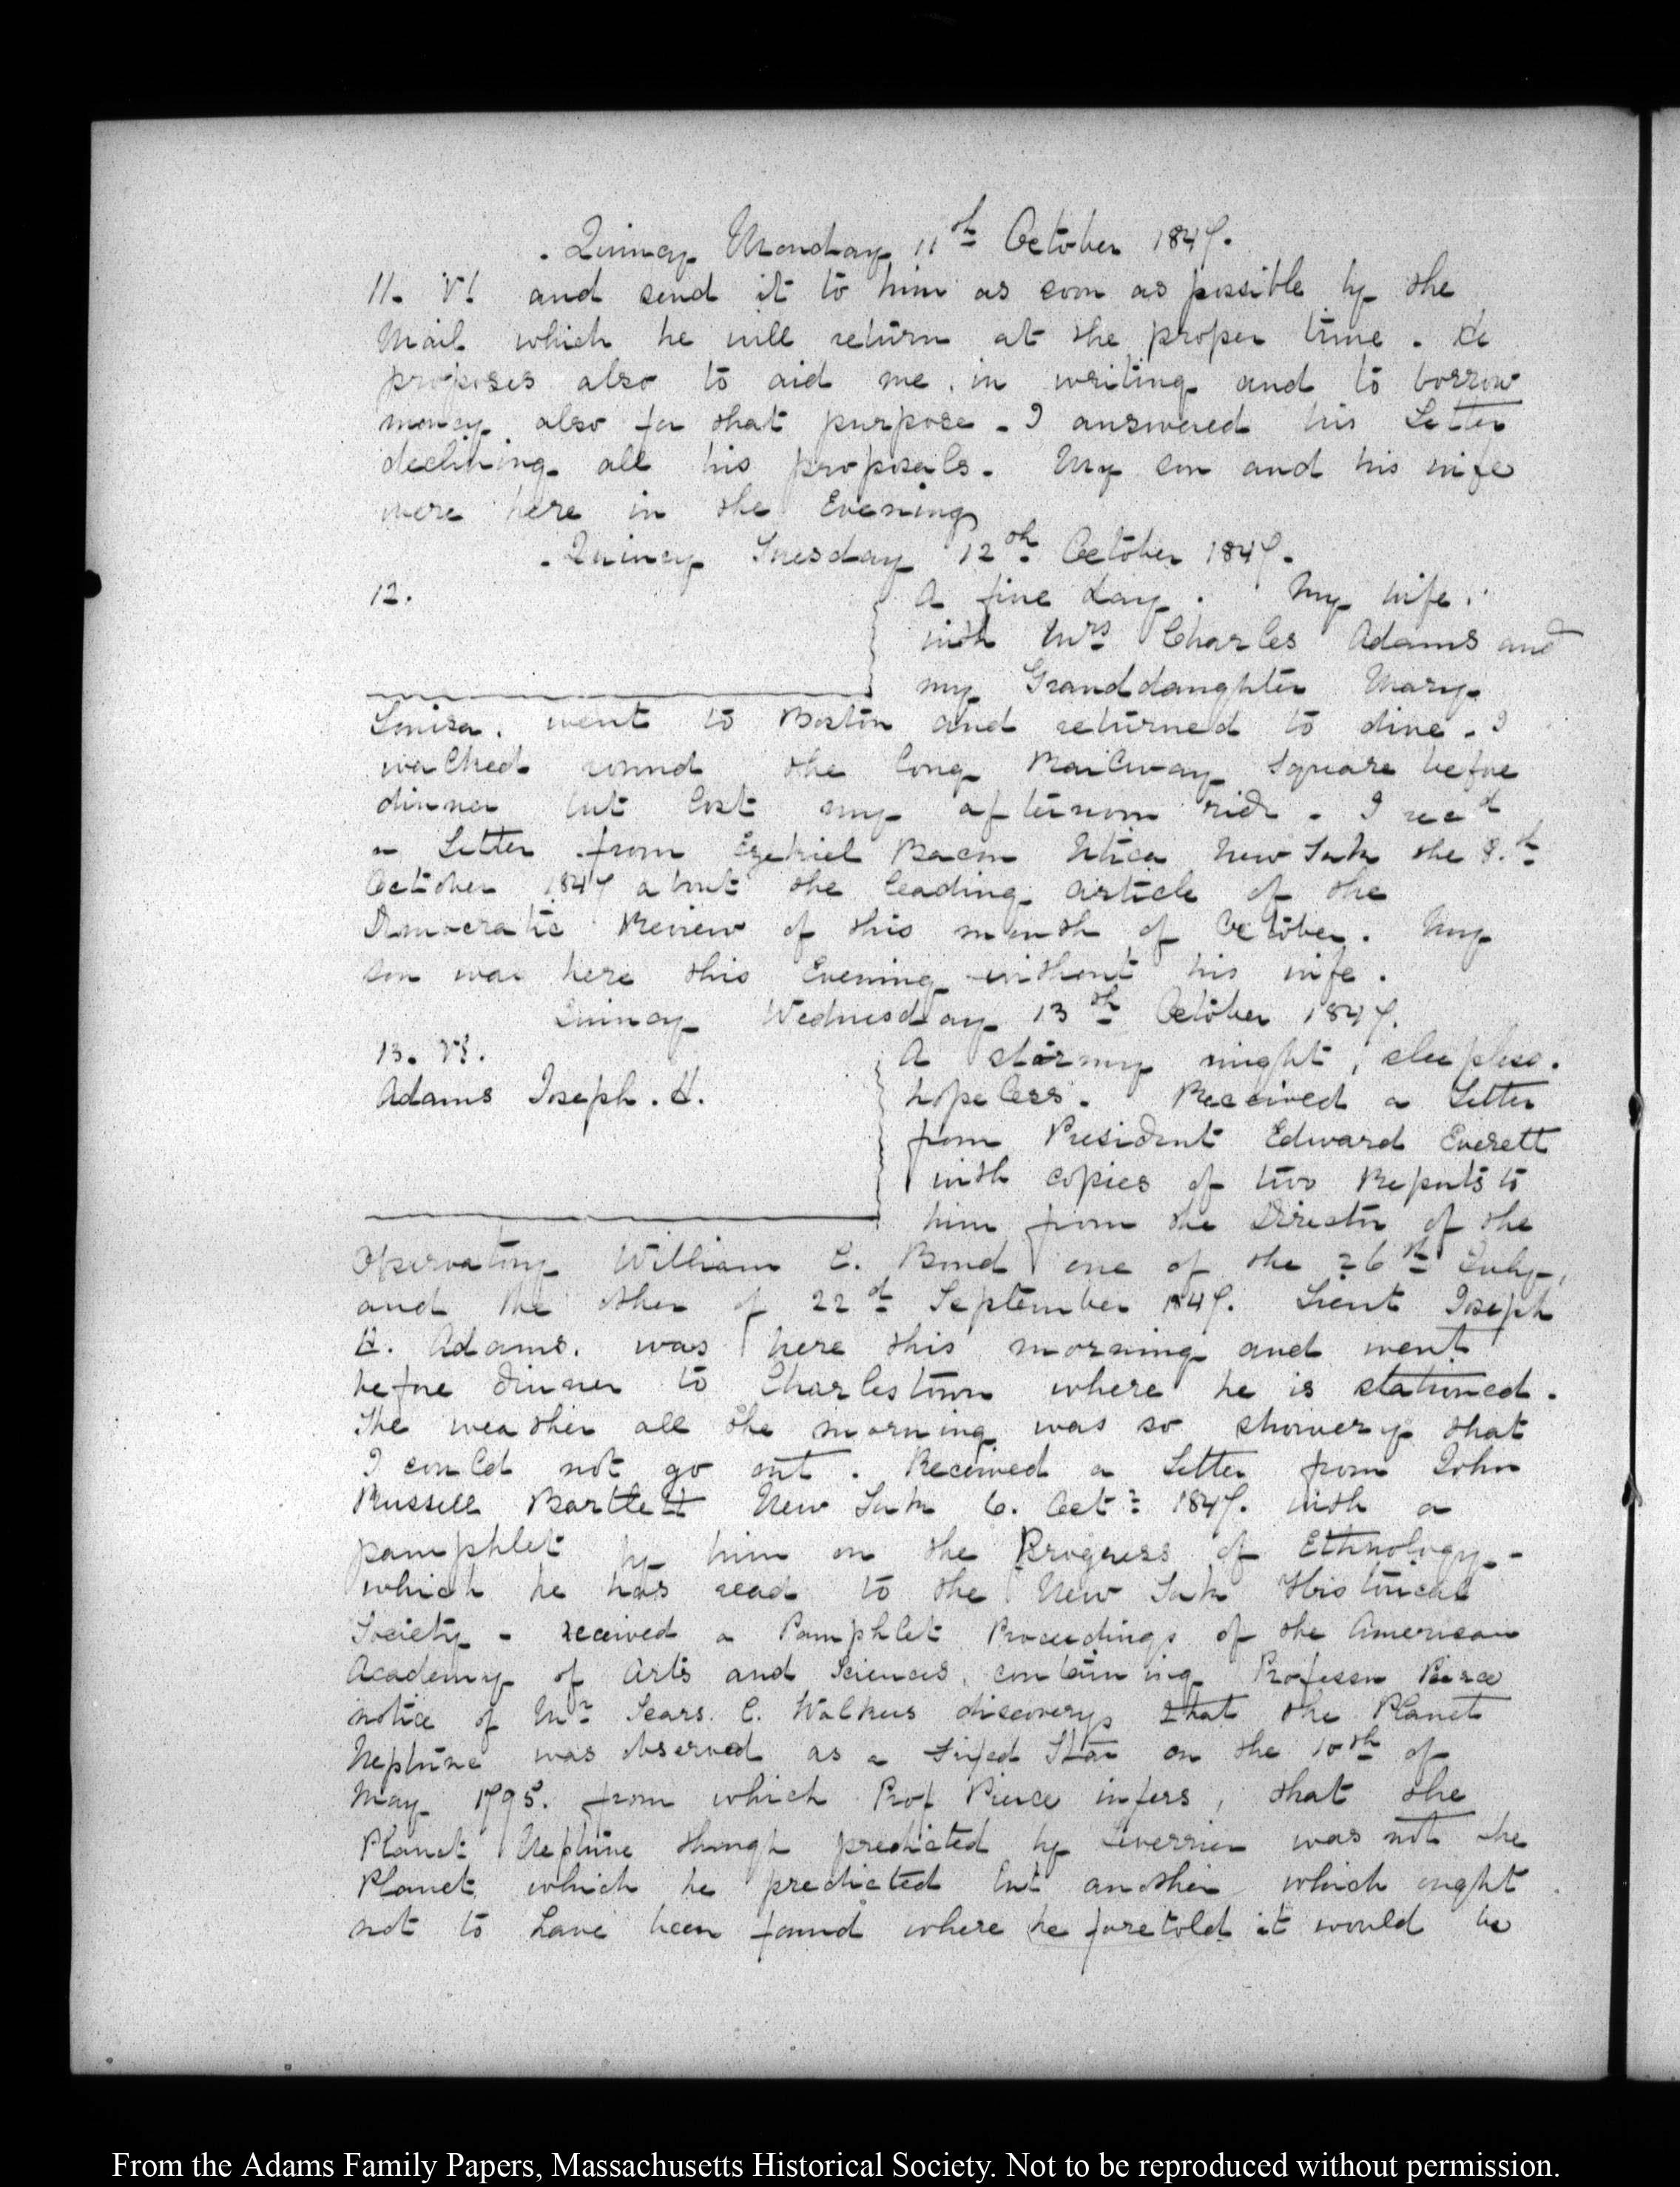 . Quincy Monday 11th October 1847.
11. VI. and send it to him as soon as possible by the
Mail which he will return at the proper time. He
proposes also to aid me in writing and to borrow
money also for that purpose - I answered his Letter
declining all his proposals. My son and his wife
were here in the Evening
. Quincy Tuesday 12th October 1847.
12. A fine day. My wife.
with Mrs Charles Adams and
my Granddaughter Mary
Louisa. went to Boston and returned to dine. I
walked round the long Railway Square before
dinner but lost my afternoon ride. I recd
a Letter from Ezekiel Bacon Utica New York the 8th
October 1847 about the leading article of the
Democratic Review of this month of October. My
son was here this Evening without his wife.
Quincy Wednesday 13th October 1847.
13. VI. A stormy night, sleepless.
Adams Joseph. H. hopeless. Received a Letter
from President Edward Everett
with copies of two Reports to
him from the Director of the
Observatory William C. Bond one of the 26th July,
and the other of 22d September 1847. Lieut Joseph
H. Adams. was here this morning and went
before dinner to Charlestown where he is stationed.
The weather all the morning was so showery that
I could not go out. Received a Letter from John
Russell Bartlett New York 6. Octr 1847. with a
pamphlet by him on the Progress of Ethnology -
which he has read to the New York Historical
Society - received a Pamphlet Proceedings of the American
Academy of Arts and Sciences, containing Professor Peirce
notice of Mr Sears. C. Walkers discovery that the Planet
Neptune was observed as a fixed Star on the 10th of
May 1795. from which Prof Pierce infers, that the
Planet Neptune though predicted by Leverrier was not the
Planet which he predicted but another which ought
not to have been found where he foretold it would be
From the Adams Family Papers, Massachusetts Historical Society. Not to be reproduced without permission.